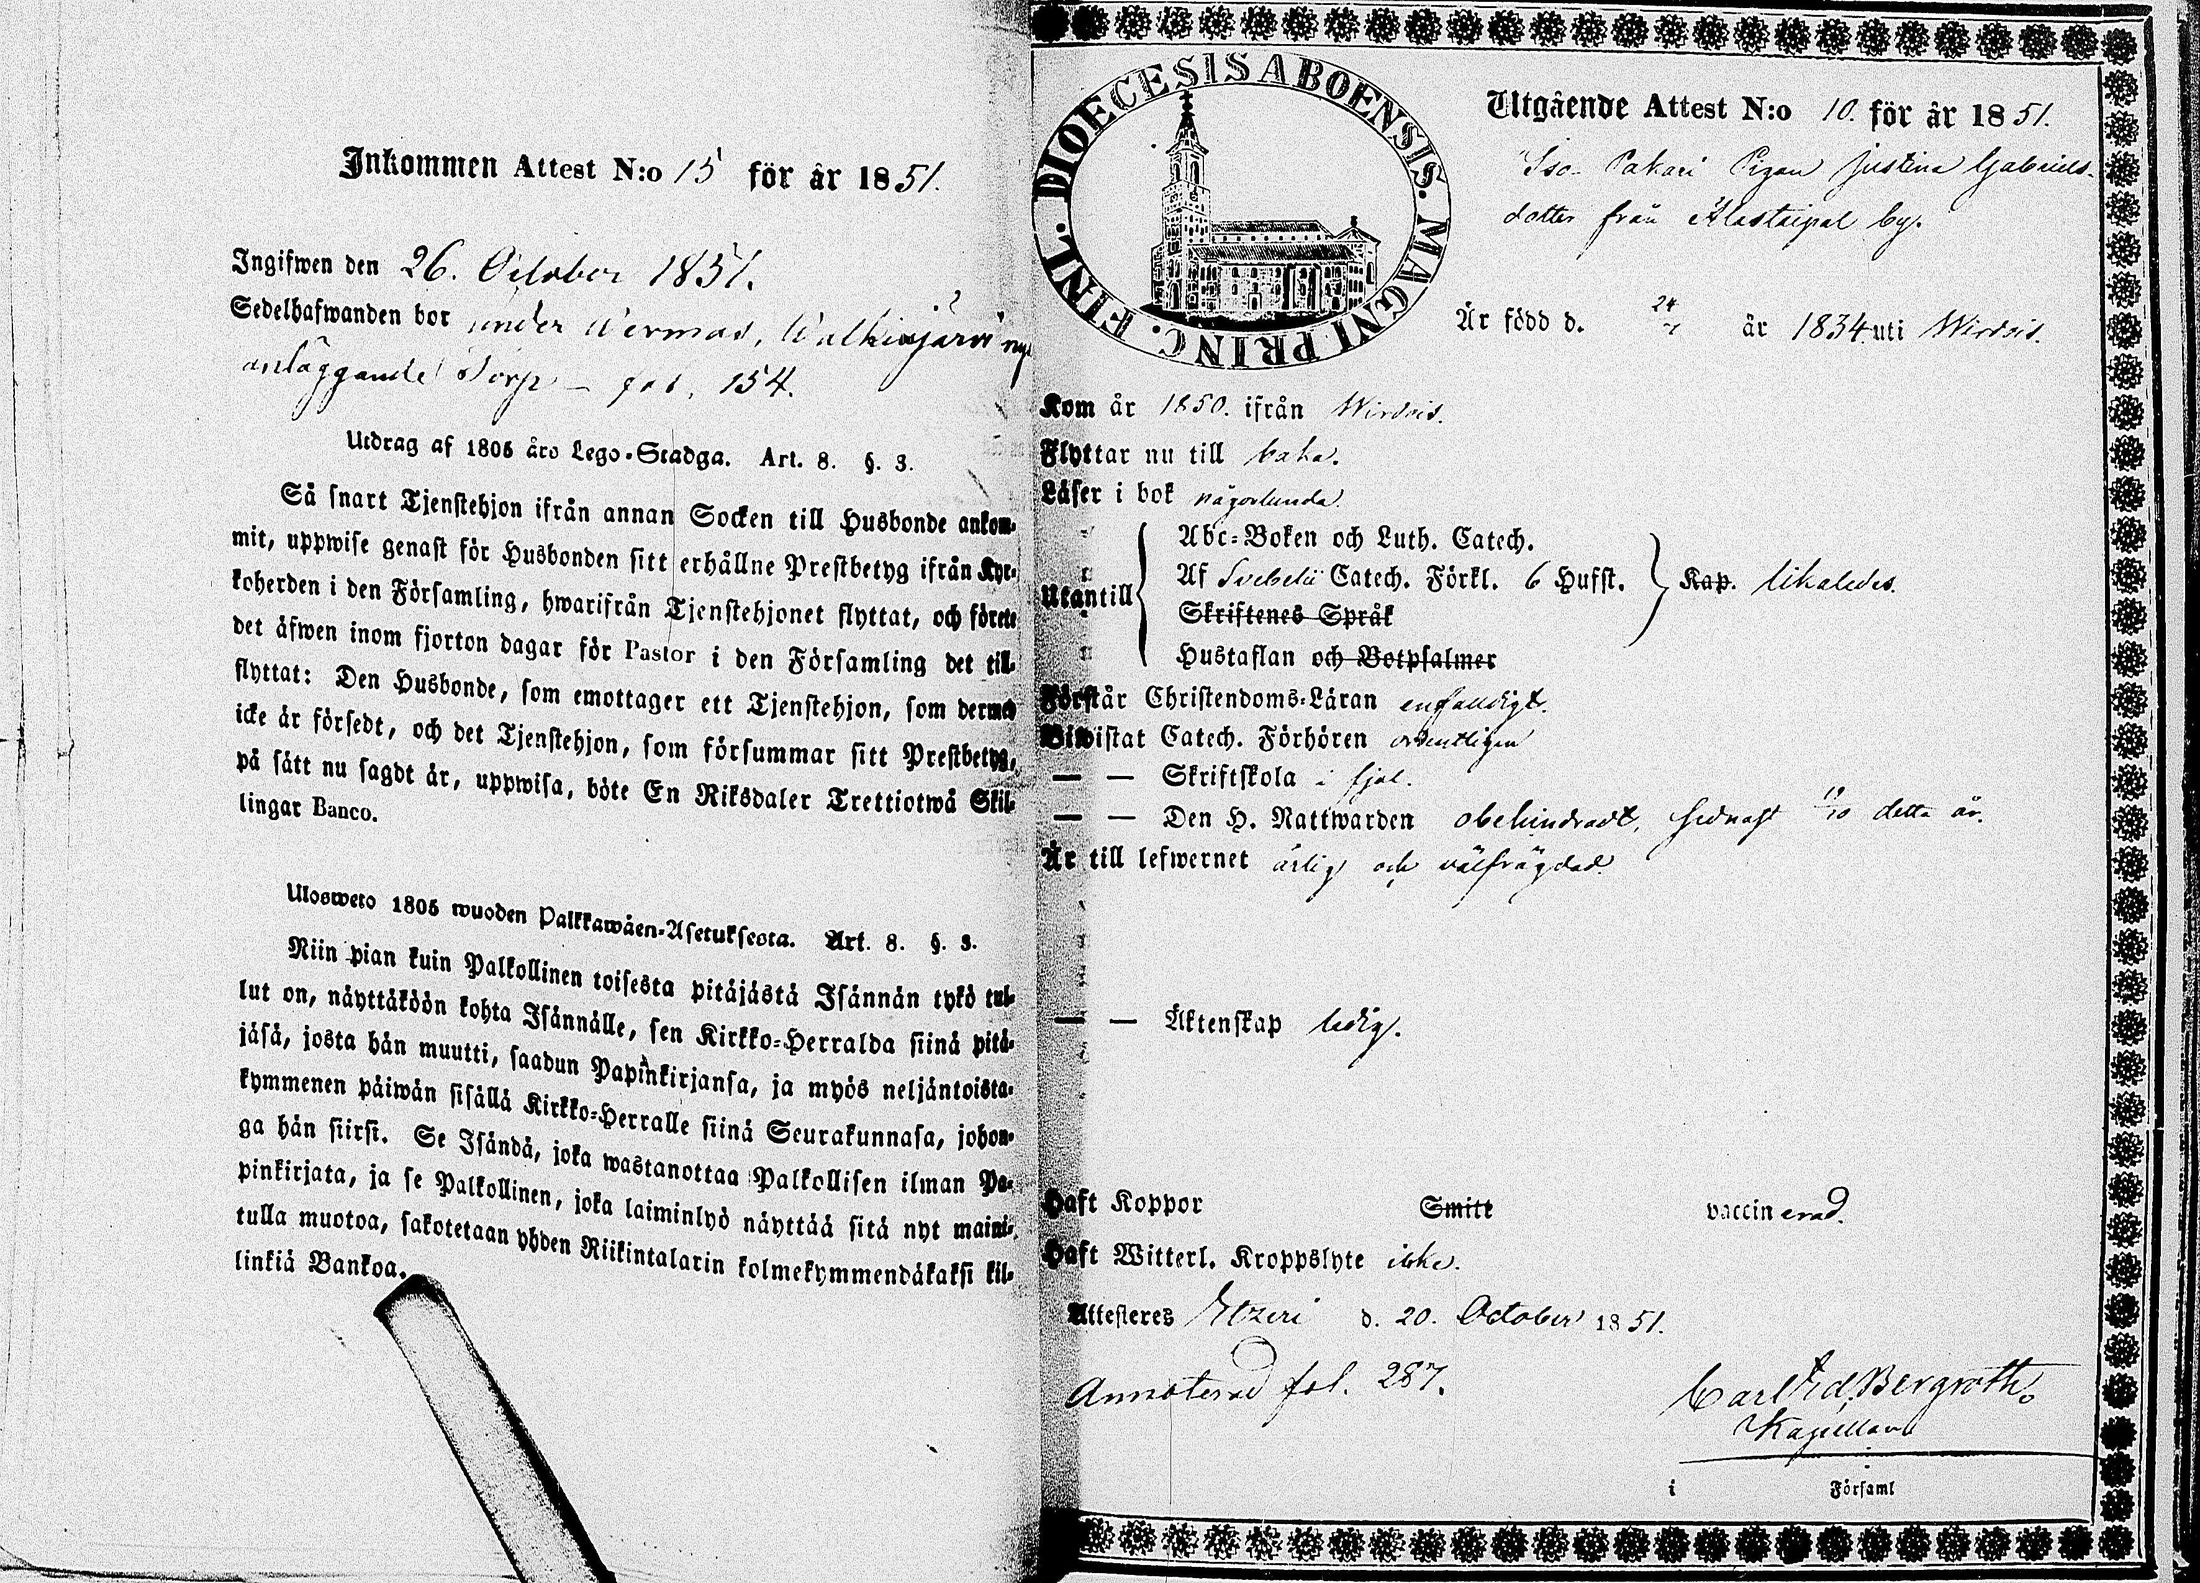 Inkommen Attest N:o 15 för år 1851.
Ingifwen den 26. October 1851.
Sedelhafwanden bor under Wermas, Walkiajärvi ny
anläggande Torp – fol. 154.
Utdrag af 1805 års Lego-Stadga. Art. 8. §. 3.
Så snart Tjenstehjon ifrån annan Socken till Husbonde ankom-
mit, uppwise genast för Husbonden sitt erhållne Prestbetyg ifrån Kyr-
koherden i den Församling, hwarifrån Tjenstehjonet flyttat, och förete
det äfwen inom fjorton dagar för Pastor i den Församling det till-
flyttat: Den Husbonde, som emottager ett Tjenstehjon, som dermed
icke är försedt, och det Tjenstehjon, som försummar sitt Prestbetyg,
på sätt nu sagdt är, uppwisa, böte En Riksdaler Trettiotwå Skil-
lingar Banco.
Ulosweto 1805 wuoden Palkkawäen-Asetuksesta. Art. 8. §. 3.
Niin pian kuin Palkollinen toisesta pitäjästä Isännän tykö tul-
lut on, näyttäköön kohta Isännälle, sen Kirkko-Herralda siinä pitä-
jäsä, josta hän muutti, saadun Papinkirjansa, ja myös neljäntoista-
kymmenen päiwän sisällä Kirkko-Herralle siinä Seurakunnasa, johon-
ga hän siirsi. Se Isändä, joka wastanottaa Palkollisen ilman Pa-
pinkirjata, ja se Palkollinen, joka laiminlyö näyttää sitä nyt maini-
tulla muotoa, sakotetaan yhden Riikintalarin kolmekymmendäkaksi kil-
linkiä Bankoa.
DIOECESIS ABOENSIS. MAGNI PRINC. FINL.
Utgående Attest N:o 10. för år 1851.
Iso Pakari Pigan Justina Gabriels-
dotter från Alastaipal by.
Är född d. 24 år 1834 uti Wirdois.
Kom år 1850. ifrån Wirdois.
Flyttar nu till baka.
Läser i bok någorlunda.
Utantill
Abc-Boken och Luth. Catech.
Af Svebelii Catech. Förkl. 6 Hufst.
Skriftenes Språk
Hustaflan och Botpsalmer
Kap. likaledes.
Förstår Christendoms-Läran enfaldigt.
Biwistat Catech. Förhören ordentligen
— — Skriftskola i fjol.
— — Den H. Nattwarden obehindradt, sednast 19/10 detta år.
Är till lefwernet ärlig och välfrägdad.
— — Äktenskap ledig.
Haft Koppor Smitt vaccinerad.
Haft Witterl. Kroppslyte icke.
Attesteres Etzeri d. 20. October 1851.
Annoterad fol. 287.
Carl Ed. Bergroth
Kapellan
i Församl